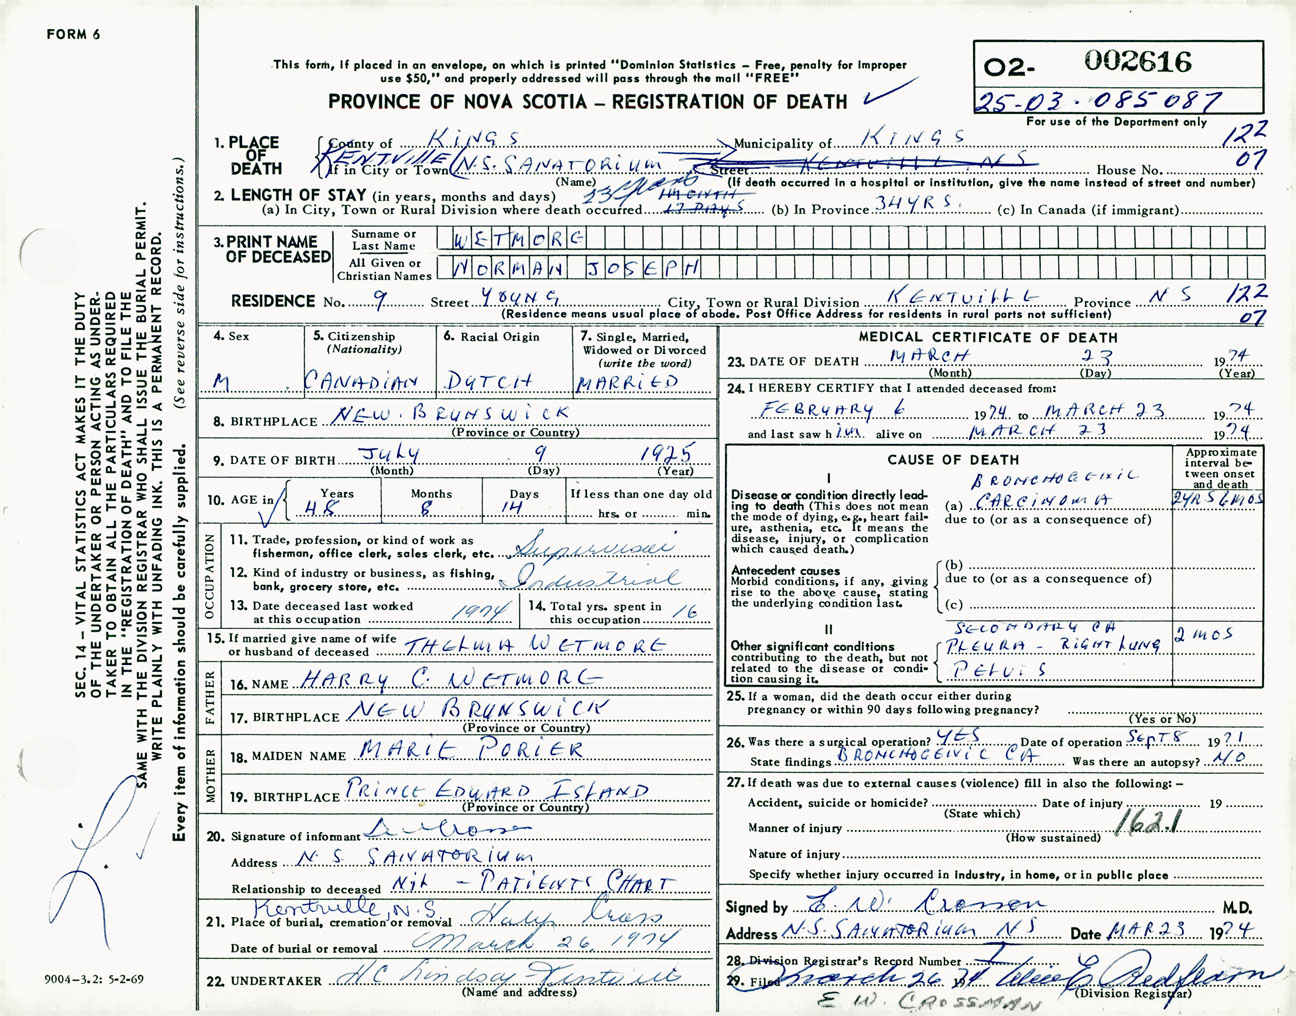 FORM 6
This form, if placed in an envelope, on which is printed "Dominion Statistics – Free, penalty for improper
use $50," and properly addressed will pass through the mail "FREE"
PROVINCE OF NOVA SCOTIA – REGISTRATION OF DEATH
O2- 002616
25-03-085087
For use of the Department only
1. PLACE OF DEATH
County of KINGS Municipality of KINGS 122
If in City or Town KENTVILLE (N.S. SANATORIUM Street KENTVILLE NS House No. 07
(Name) (If death occurred in a hospital or institution, give the name instead of street and number)
2. LENGTH OF STAY (in years, months and days) 23 years 1 MONTH
(a) In City, Town or Rural Division where death occurred 17 DAYS (b) In Province 34 YRS. (c) In Canada (if immigrant)
3. PRINT NAME OF DECEASED
Surname or Last Name WETMORE
All Given or Christian Names NORMAN JOSEPH
RESIDENCE No. 9 Street YOUNG City, Town or Rural Division KENTVILLE Province NS 122
(Residence means usual place of abode. Post Office Address for residents in rural parts not sufficient) 07
4. Sex M
5. Citizenship (Nationality) CANADIAN
6. Racial Origin DUTCH
7. Single, Married, Widowed or Divorced (write the word) MARRIED
8. BIRTHPLACE NEW BRUNSWICK
(Province or Country)
9. DATE OF BIRTH July 9 1925
(Month) (Day) (Year)
10. AGE in Years 48 Months 8 Days 14 If less than one day old hrs. or min.
OCCUPATION
11. Trade, profession, or kind of work as fisherman, office clerk, sales clerk, etc. Supervisor
12. Kind of industry or business, as fishing, bank, grocery store, etc. Industrial
13. Date deceased last worked at this occupation 1974
14. Total yrs. spent in this occupation 16
15. If married give name of wife or husband of deceased THELMA WETMORE
FATHER
16. NAME HARRY C. WETMORE
17. BIRTHPLACE NEW BRUNSWICK
(Province or Country)
MOTHER
18. MAIDEN NAME MARIE PORIER
19. BIRTHPLACE PRINCE EDWARD ISLAND
(Province or Country)
20. Signature of informant
Address N.S. SANATORIUM
Relationship to deceased Nil – PATIENTS CHART
Kentville, N.S
21. Place of burial, cremation or removal Holy Cross
Date of burial or removal March 26, 1974
22. UNDERTAKER H C Lindsay Kentville
(Name and address)
MEDICAL CERTIFICATE OF DEATH
23. DATE OF DEATH MARCH 23 1974
(Month) (Day) (Year)
24. I HEREBY CERTIFY that I attended deceased from:
FEBRUARY 6 1974 to MARCH 23 1974
and last saw him alive on MARCH 23 1974
CAUSE OF DEATH
Approximate interval between onset and death
I
Disease or condition directly leading to death (This does not mean the mode of dying, e.g., heart failure, asthenia, etc. It means the disease, injury, or complication which caused death.)
(a) BRONCHOGENIC CARCINOMA 2YRS 6MOS
due to (or as a consequence of)
Antecedent causes
Morbid conditions, if any, giving rise to the above cause, stating the underlying condition last.
(b)
due to (or as a consequence of)
(c)
II
Other significant conditions contributing to the death, but not related to the disease or condition causing it.
SECONDARY CA
PLEURA – RIGHT LUNG 2 MOS
PELVIS
25. If a woman, did the death occur either during pregnancy or within 90 days following pregnancy?
(Yes or No)
26. Was there a surgical operation? YES Date of operation Sept 8 1971
State findings BRONCHOGENIC CA Was there an autopsy? NO
27. If death was due to external causes (violence) fill in also the following: –
Accident, suicide or homicide? Date of injury 19
(State which)
Manner of injury 162.1
(How sustained)
Nature of injury
Specify whether injury occurred in industry, in home, or in public place
Signed by E. W. Crossman M.D.
Address N.S. SANATORIUM NS Date MAR 23 1974
28. Division Registrar's Record Number
29. Filed March 26 1974
(Division Registrar)
E W CROSSMAN
SEC. 14 – VITAL STATISTICS ACT MAKES IT THE DUTY
OF THE UNDERTAKER OR PERSON ACTING AS UNDER-
TAKER TO OBTAIN ALL THE PARTICULARS REQUIRED
IN THE "REGISTRATION OF DEATH" AND TO FILE THE
SAME WITH THE DIVISION REGISTRAR WHO SHALL ISSUE THE BURIAL PERMIT.
WRITE PLAINLY WITH UNFADING INK. THIS IS A PERMANENT RECORD.
Every item of information should be carefully supplied. (See reverse side for instructions.)
9004-3.2: 5-2-69